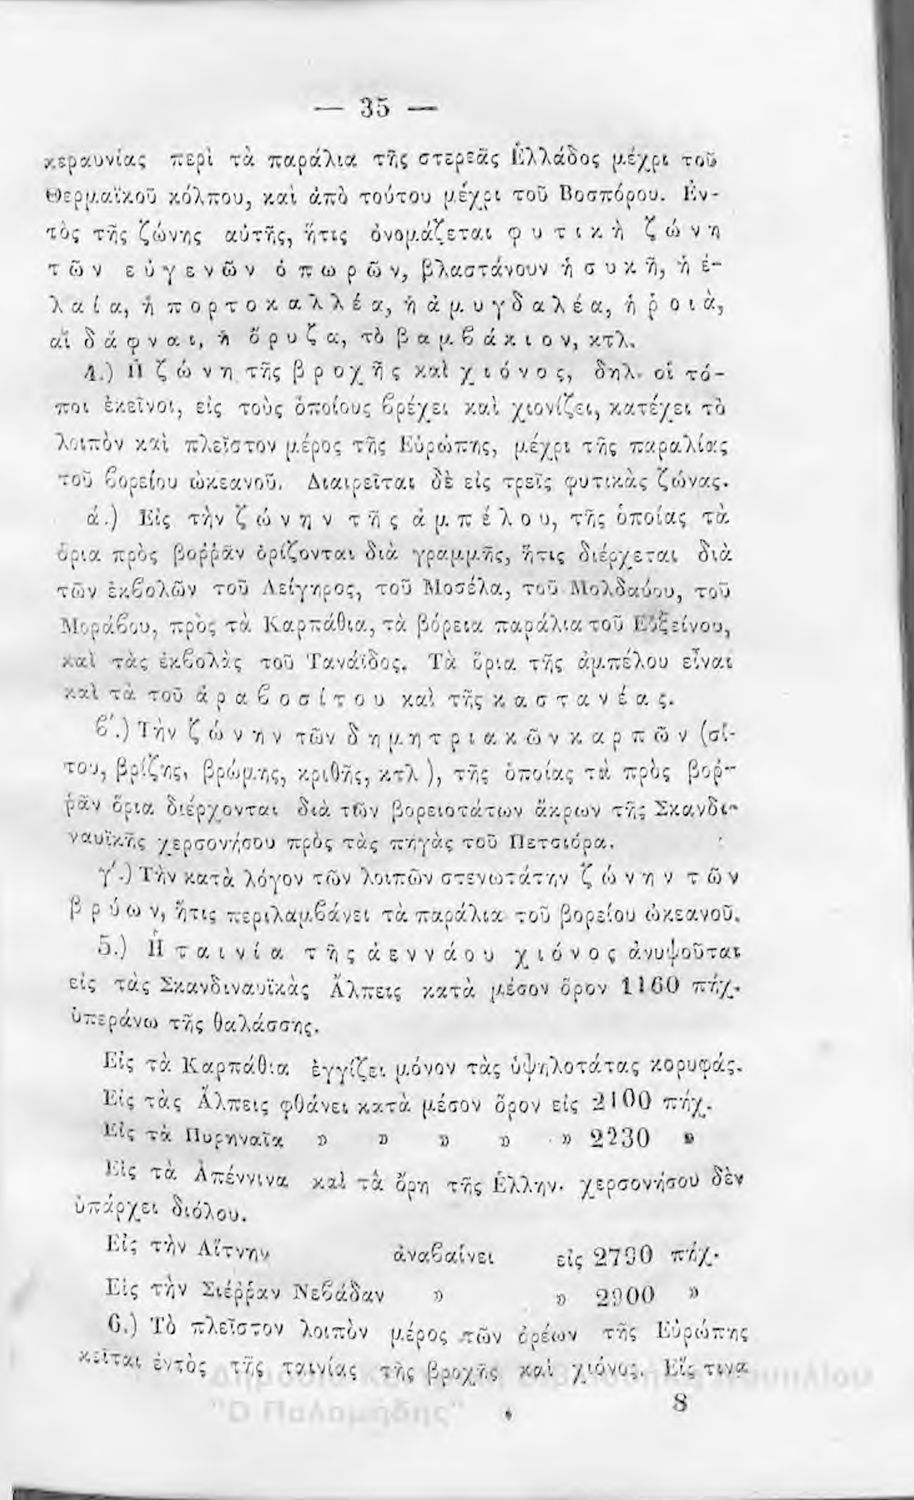 — 35 —
κεραυνίας περὶ τὰ παράλια τῆς στερεᾶς Ἑλλάδος μέχρι τοῦ
Θερμαϊκοῦ κόλπου, καὶ ἀπὸ τούτου μέχρι τοῦ Βοσπόρου. Ἐν-
τὸς τῆς ζώνης αὐτῆς, ἥτις ὀνομάζεται φυτικὴ ζώνη
τῶν εὐγενῶν ὀπωρῶν, βλαστάνουν ἡ συκῆ, ἡ ἐ-
λαία, ἡ πορτοκαλλέα, ἡ ἀμυγδαλέα, ἡ ῥοιὰ,
αἱ δάφναι, ἡ ὄρυζα, τὸ βαμβάκιον, κτλ.
4.) Ἡ ζώνη τῆς βροχῆς καὶ χιόνος, δηλ. οἱ τό-
ποι ἐκεῖνοι, εἰς τοὺς ὁποίους βρέχει καὶ χιονίζει, κατέχει τὸ
λοιπὸν καὶ πλεῖστον μέρος τῆς Εὐρώπης, μέχρι τῆς παραλίας
τοῦ βορείου ὠκεανοῦ. Διαιρεῖται δὲ εἰς τρεῖς φυτικὰς ζώνας.
ά.) Εἰς τὴν ζώνην τῆς ἀμπέλου, τῆς ὁποίας τὰ
ὅρια πρὸς βοῤῥᾶν ὁρίζονται διὰ γραμμῆς, ἥτις διέρχεται διὰ
τῶν ἐκβολῶν τοῦ Λείγηρος, τοῦ Μοσέλα, τοῦ Μολδαύου, τοῦ
Μοράβου, πρὸς τὰ Καρπάθια, τὰ βόρεια παράλια τοῦ Εὐξείνου,
καὶ τὰς ἐκβολὰς τοῦ Τανάϊδος. Τὰ ὅρια τῆς ἀμπέλου εἶναι
καὶ τὰ τοῦ ἀραβοσίτου καὶ τῆς καστανέας.
β΄.) Τὴν ζώνην τῶν δημητριακῶν καρπῶν (σί-
του, βρίζης, βρώμης, κριθῆς, κτλ), τῆς ὁποίας τὰ πρὸς βοῤ-
ῥᾶν ὅρια διέρχονται διὰ τῶν βορειοτάτων ἄκρων τῆς Σκανδι-
ναυϊκῆς χερσονήσου πρὸς τὰς πηγὰς τοῦ Πετσιόρα.
γ΄.) Τὴν κατὰ λόγον τῶν λοιπῶν στενωτάτην ζώνην τῶν
βρύων, ἥτις περιλαμβάνει τὰ παράλια τοῦ βορείου ὠκεανοῦ.
5.) Ἡ ταινία τῆς ἀεννάου χιόνος ἀνυψοῦται
εἰς τὰς Σκανδιναυϊκὰς Ἄλπεις κατὰ μέσον ὅρον 1160 πήχ.
ὑπεράνω τῆς θαλάσσης.
Εἰς τὰ Καρπάθια ἐγγίζει μόνον τὰς ὑψηλοτάτας κορυφάς.
Εἰς τὰς Ἄλπεις φθάνει κατὰ μέσον ὅρον εἰς 2100 πήχ.
Εἰς τὰ Πυρηναῖα » » » » » 2230 »
Εἰς τὰ Ἀπέννινα καὶ τὰ ὄρη τῆς Ἑλλην. χερσονήσου δὲν
ὑπάρχει διόλου.
Εἰς τὴν Αἴτνην ἀναβαίνει εἰς 2790 πήχ.
Εἰς τὴν Σιέῤῥαν Νεβάδαν » » 2900 »
6.) Τὸ πλεῖστον λοιπὸν μέρος τῶν ὀρέων τῆς Εὐρώπης
κεῖται ἐντὸς τῆς ταινίας τῆς βροχῆς καὶ χιόνος. Εἴς τινα
8
"Ο Παλαμήδης"